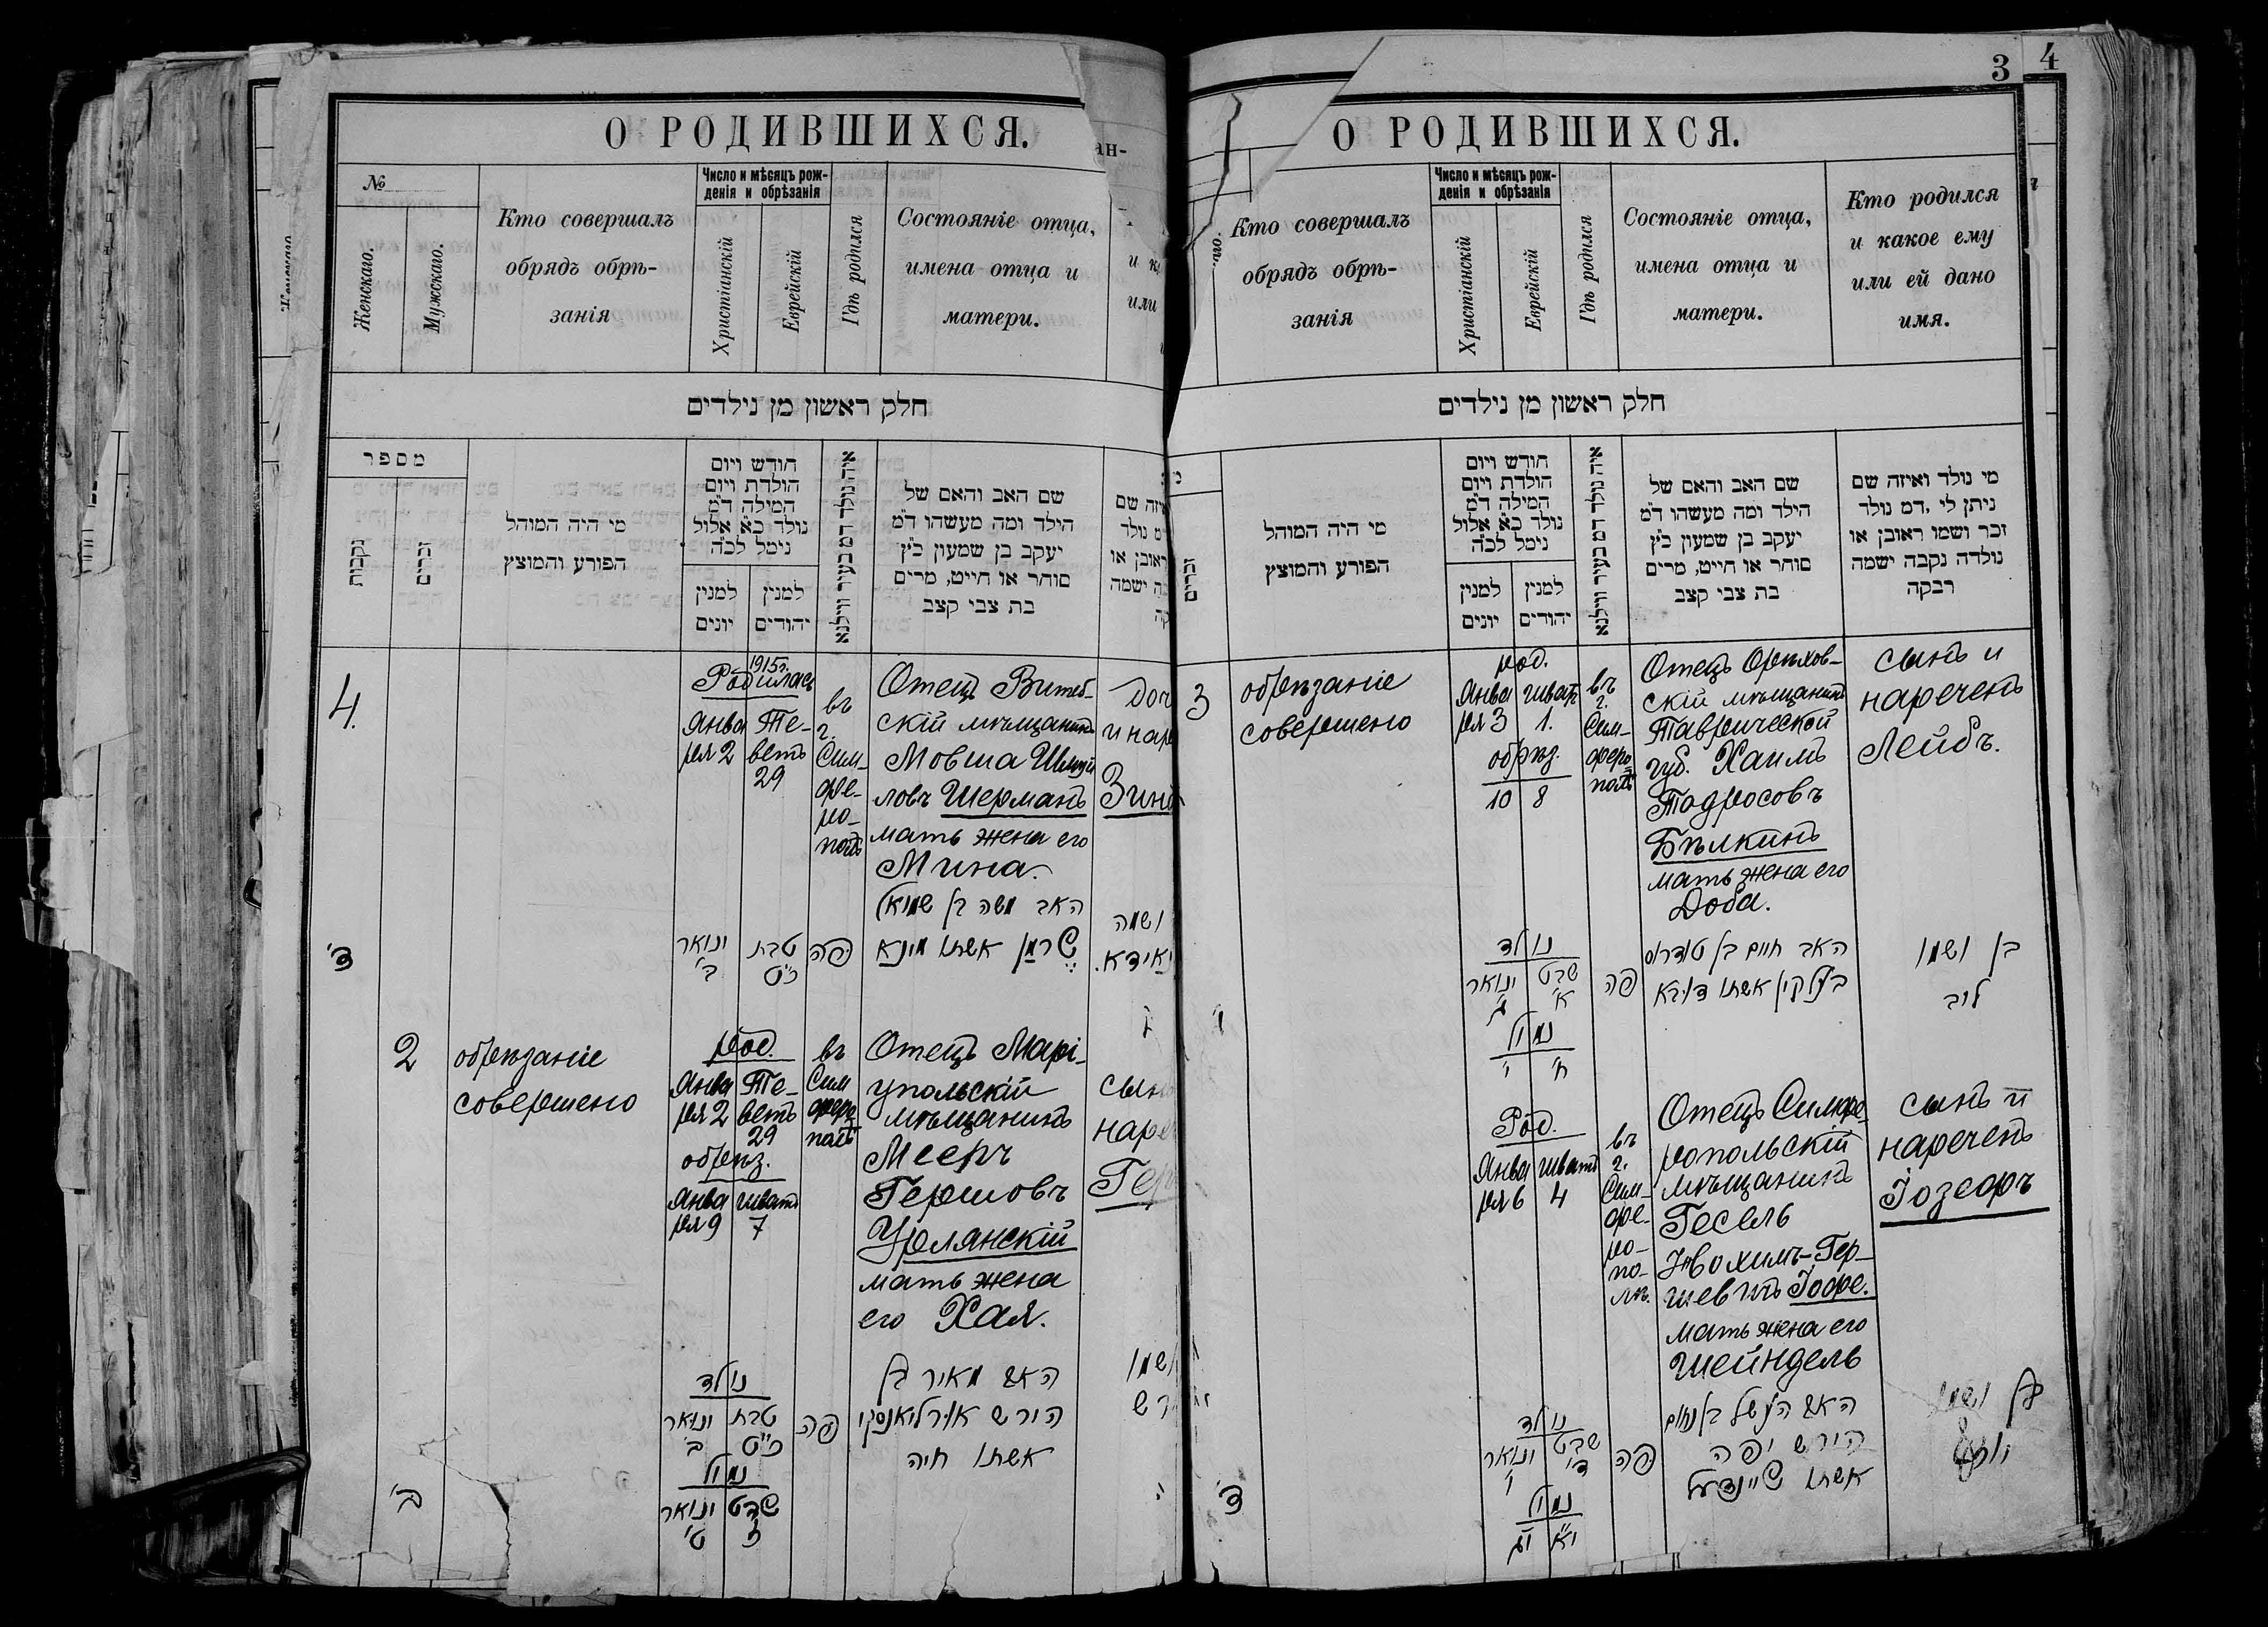 3
4
О РОДИВШИХСЯ.
№
Женскаго.
Мужскаго.
Кто совершалъ
обрядъ обрѣ-
занія
Число и мѣсяцъ рож-
денія и обрѣзанія
Христіанскій
Еврейскій
Гдѣ родился
Состояніе отца,
имена отца и
матери.
ан-
или
חלק ראשון מן נילדים
מספר
נקבות
זכרים
מי היה המוהל
הפורע והמוצץ
חודש ויום
הולדת ויום
המילה ד"מ
נולד כ"א אלול
נימל לכ"ה
למנין
יונים
למנין
יהודים
איה נולד דמ בעיר ווילנא
שם האב והאם של
הילד ומה מעשהו ד"מ
יעקב בן שמעון כ"ץ
סוחר או חייט, מרים
בת צבי קצב
4.
1915г.
Родилась
Янва
ря 2
Те-
ветъ
29
въ
г.
Сим-
фе-
ро-
полѣ
Отецъ Витеб-
скій мѣщанинъ
Мовша Шмуй
ловъ Шерманъ
мать жена его
Мина.
Доч
и наре
Зина
ד'
ינואר
ב'
טבת
כ"ט
פה
האב משה בן שמואל
שרמן אשתו מינא
ושמה
2
обрѣзаніе
совершено
род.
Янва
ря 2
Те-
ветъ
29
обрѣз.
Янва
ря 9
шватъ
7
въ
Сим
феро
полѣ
Отецъ Марі-
упольскій
мѣщанинъ
Мееръ
Гершовъ
Урлянскій
мать жена
его Хая.
сынъ
наре
Гер
ב'
נולד
ינואר
ב'
טבת
כ"ט
נמול
ינואר
ט'
שבט
ז
פה
האב מאיר בן
הירש אורליאנסקי
אשתו חיה
ושמו
О РОДИВШИХСЯ.
Кто совершалъ
обрядъ обрѣ-
занія
Число и мѣсяцъ рож-
денія и обрѣзанія
Христіанскій
Еврейскій
Гдѣ родился
Состояніе отца,
имена отца и
матери.
Кто родился
и какое ему
или ей дано
имя.
חלק ראשון מן נילדים
זכרים
מי היה המוהל
הפורע והמוצץ
חודש ויום
הולדת ויום
המילה ד"מ
נולד כ"א אלול
נימל לכ"ה
למנין
יונים
למנין
יהודים
איה נולד דמ בעיר ווילנא
שם האב והאם של
הילד ומה מעשהו ד"מ
יעקב בן שמעון כ"ץ
סוחר או חייט, מרים
בת צבי קצב
מי נולד ואיזה שם
ניתן לי, דמ נולד
זכר ושמו ראובן או
נולדה נקבה ישמה
רבקה
3
обрѣзаніе
совершено
род.
Янва
ря 3
шватъ
1.
обрѣз.
10
8
въ
г.
Сим-
феро
полѣ
Отецъ Орѣхов-
скій мѣщанинъ
Таврической
губ. Хаимъ
Тодросовъ
Бѣлкинъ
мать жена его
Доба.
сынъ и
нареченъ
Лейбъ.
נולד
ינואר
ג'
שבט
א'
נמול
י'
ח'
פה
האב חיים בן טודרוס
ביעלקין אשתו דובא
בן ושמו
לוב
Род.
Янва
ря 6
шватъ
4
въ
г.
Сим-
фе-
ро-
по-
лѣ.
Отецъ Симфе-
ропольскій
мѣщанинъ
Гесель
Нвохимъ-Гер-
шевичъ Іофе.
мать жена его
Шейндель
сынъ и
нареченъ
Іозефъ
ד'
נולד
ינואר
ו'
שבט
ד'
נמול
י"ג
י"א
פה
האב העשל בן נחום
הירש יפה
אשתו שיינדעל
בן ושמו